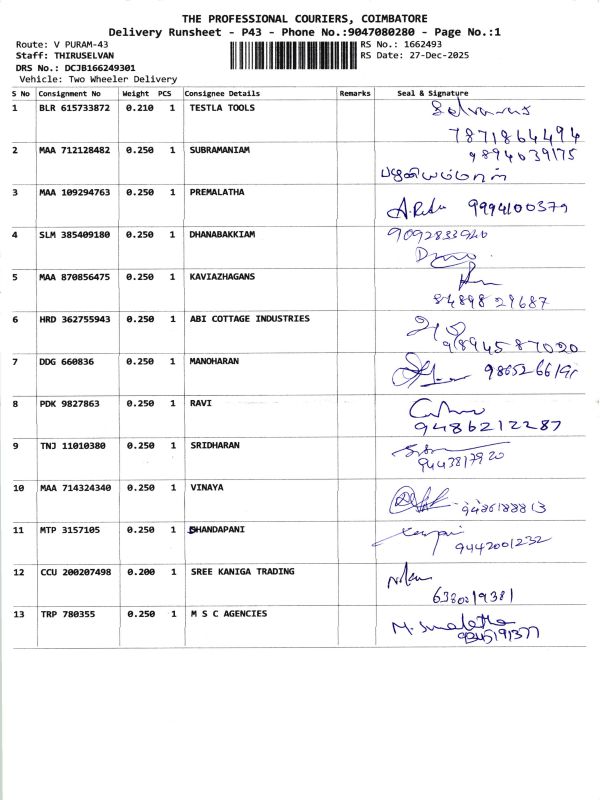 THE PROFESSIONAL COURIERS, COIMBATORE
Delivery Runsheet - P43 - Phone No.:9047080280 - Page No.:1
Route: V PURAM-43 RS No.: 1662493
Staff: THIRUSELVAN RS Date: 27-Dec-2025
DRS No.: DCJB166249301
Vehicle: Two Wheeler Delivery
S No Consignment No Weight PCS Consignee Details Remarks Seal & Signature
1 BLR 615733872 0.210 1 TESTLA TOOLS
7871864494
2 MAA 712128482 0.250 1 SUBRAMANIAM 9894039175
பழனியம்மாள்
3 MAA 109294763 0.250 1 PREMALATHA
9994100379
4 SLM 385409180 0.250 1 DHANABAKKIAM 9092833940
5 MAA 870856475 0.250 1 KAVIAZHAGANS
8489829687
6 HRD 362755943 0.250 1 ABI COTTAGE INDUSTRIES
9894587020
7 DDG 660836 0.250 1 MANOHARAN
8 PDK 9827863 0.250 1 RAVI
9486212287
9 TNJ 11010380 0.250 1 SRIDHARAN
9443817920
10 MAA 714324340 0.250 1 VINAYA
9486188813
11 MTP 3157105 0.250 1 DHANDAPANI
9442001232
12 CCU 200207498 0.200 1 SREE KANIGA TRADING
6380219381
13 TRP 780355 0.250 1 M S C AGENCIES